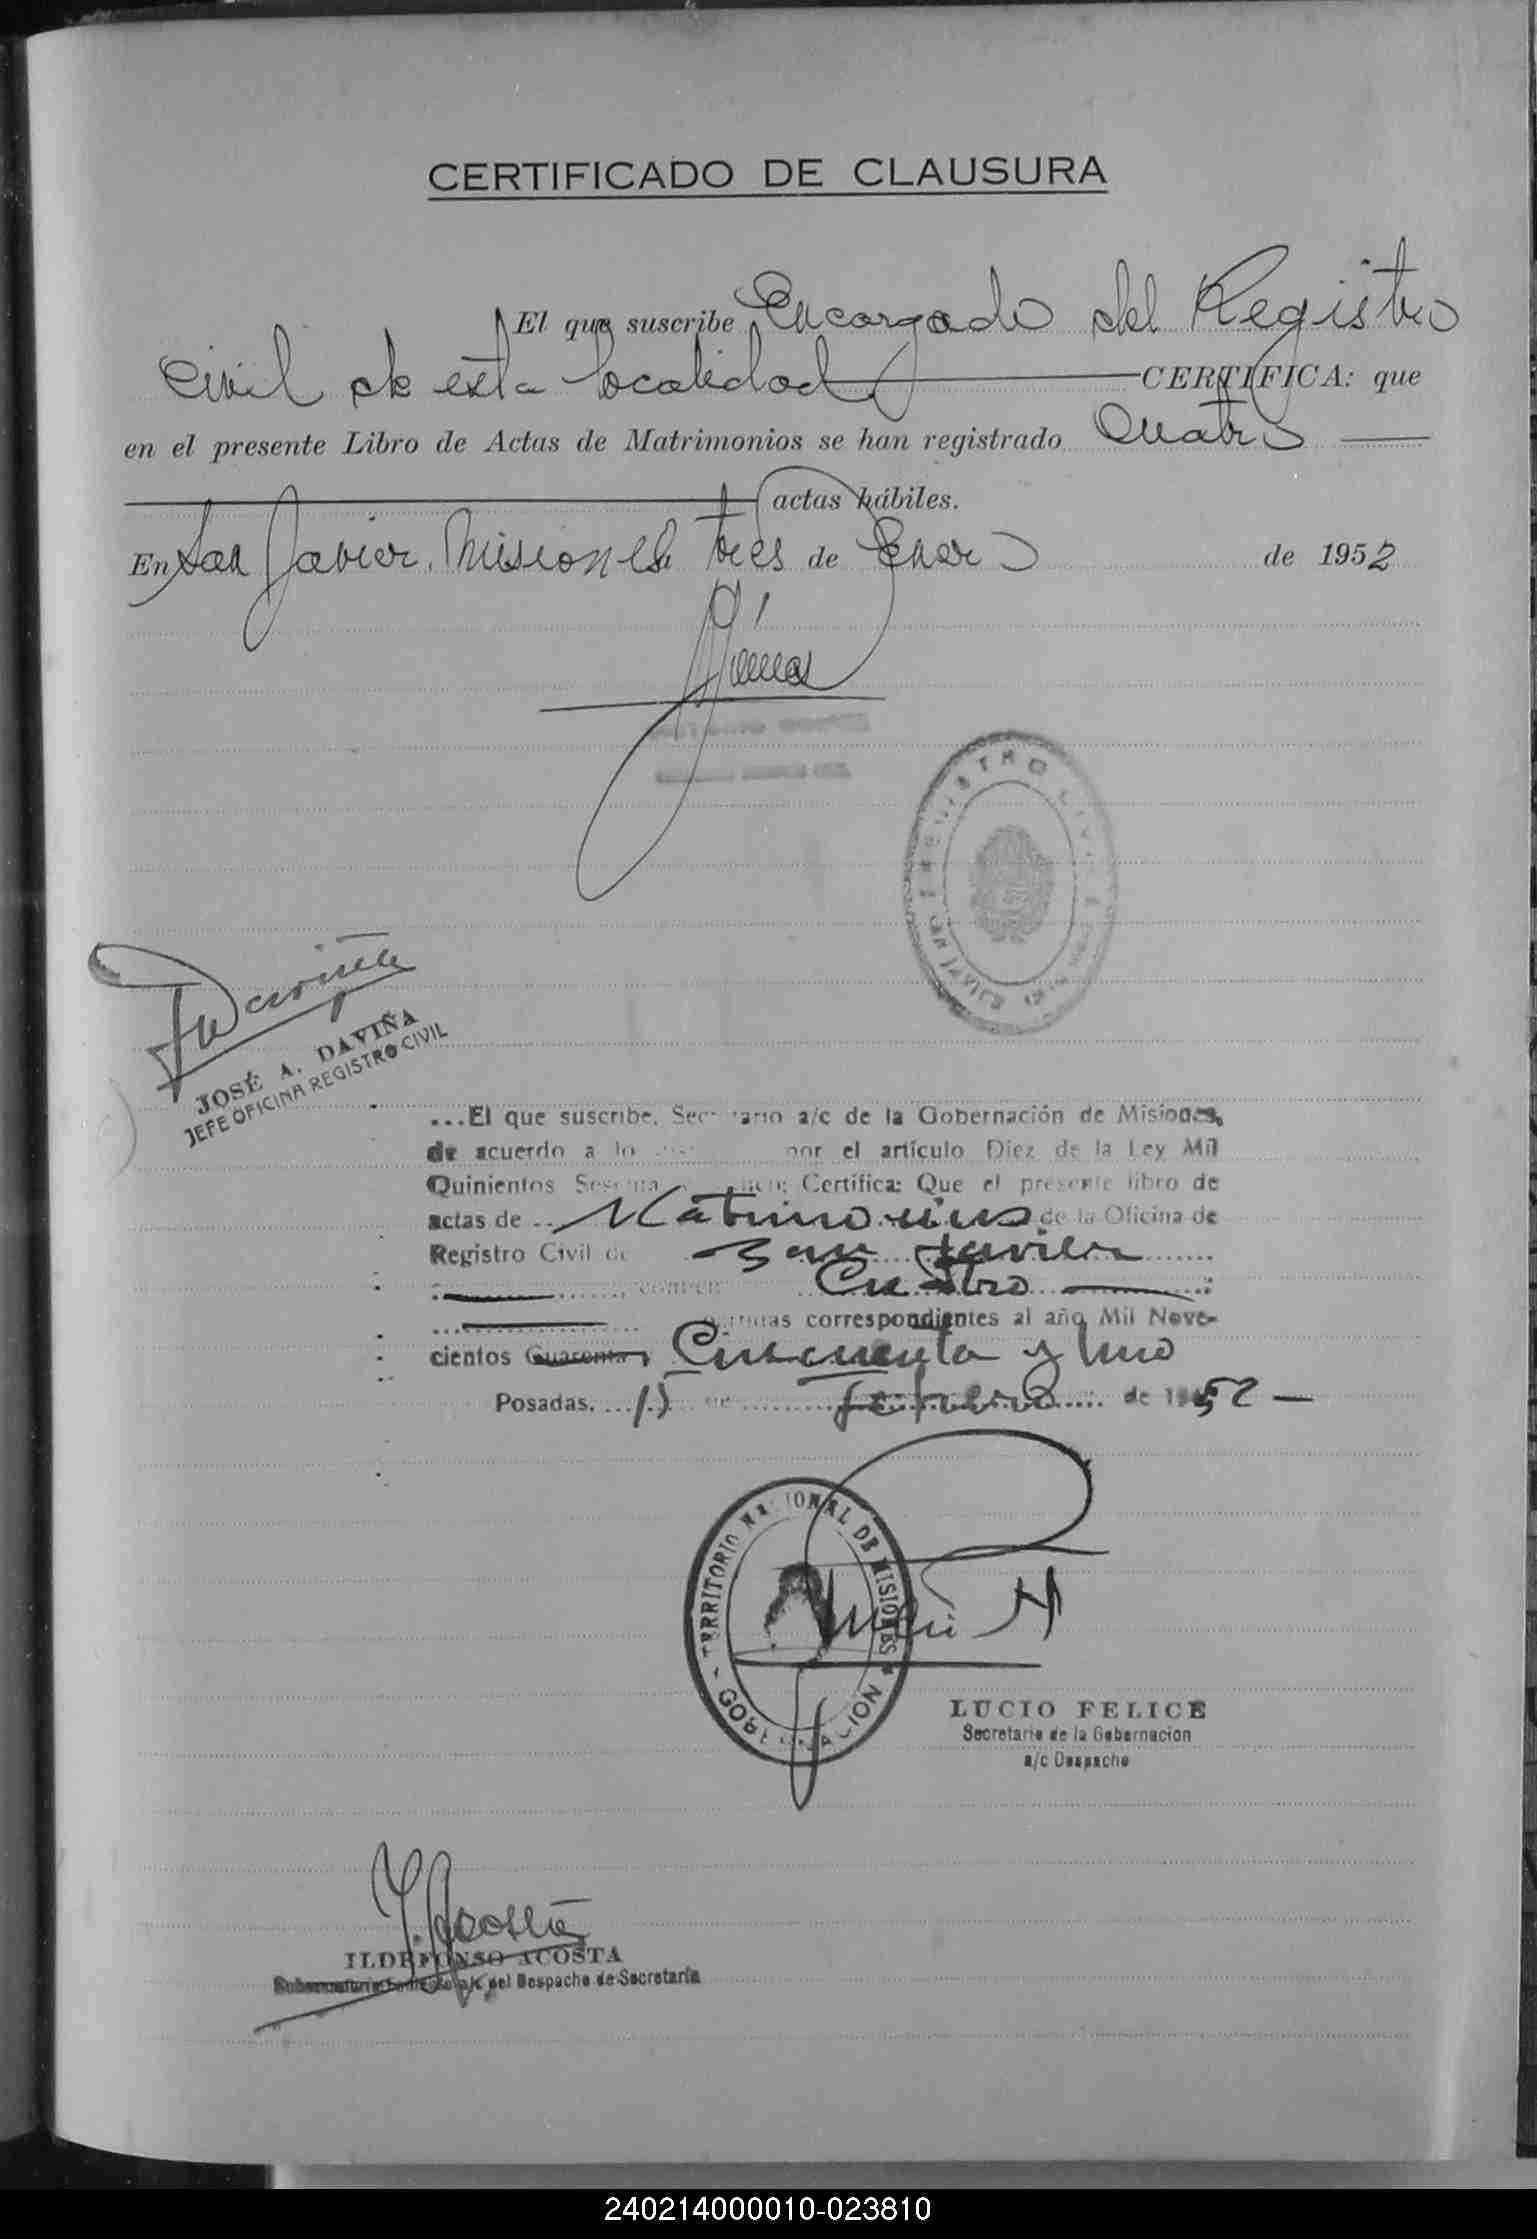 CERTIFICADO DE CLAUSURA
El que suscribe Encargado del Registro
Civil de esta localidad CERTIFICA: que
en el presente Libro de Actas de Matrimonios se han registrado Cuatro
actas hábiles.
En San Javier, Misiones, tres de Enero de 1952
REGISTRO CIVIL
SAN JAVIER
JOSÉ A. DAVIÑA
JEFE OFICINA REGISTRO CIVIL
...El que suscribe, Secretario a/c de la Gobernación de Misiones,
de acuerdo a lo por el artículo Diez de la Ley Mil
Quinientos Sesenta Certifica: Que el presente libro de
actas de Matrimonios de la Oficina de
Registro Civil de San Javier
Cuatro
correspondientes al año Mil Nove-
cientos Cuarenta y Cincuenta y Uno
Posadas, 15 de febrero de 1952 —
TERRITORIO NACIONAL DE MISIONES
GOBERNACION
LUCIO FELICE
Secretario de la Gobernacion
a/c Despacho
I. Acosta
ILDEFONSO ACOSTA
del Despacho de Secretaría
240214000010-023810